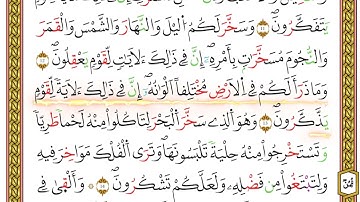 يَتَفَكَّرُونَ ۝١١ وَسَخَّرَ لَكُمُ اَ۬ليْلَ وَالنَّهَارَ وَالشَّمْسَ وَالْقَمَرَ
وَالنُّجُومَ مُسَخَّرَٰتِۢ بِأَمْرِهِۦٓ إِنَّ فِے ذَٰلِكَ ءَلَايَٰتٖ لِّقَوْمٖ يَعْقِلُونَ
وَمَا ذَرَأَ لَكُمْ فِے اِ۬لَارْضِ مُخْتَلِفاً اَلْوَٰنُهُۥٓ إِنَّ فِے ذَٰلِكَ ءَلَايَةٗ لِّقَوْمٖ
يَذَّكَّرُونَ وَهُوَ اَ۬لذِے سَخَّرَ اَ۬لْبَحْرَ لِتَاكُلُواْ مِنْهُ لَحْماٗ طَرِيّاٗ
وَتَسْتَخْرِجُواْ مِنْهُ حِلْيَةٗ تَلْبَسُونَهَا وَتَرَي اَ۬لْفُلْكَ مَوَاخِرَ فِيهِ
وَلِتَبْتَغُواْ مِن فَضْلِهِۦ وَلَعَلَّكُمْ تَشْكُرُونَ ۝١٤ وَأَلْق۪يٰ فِے
ثمن